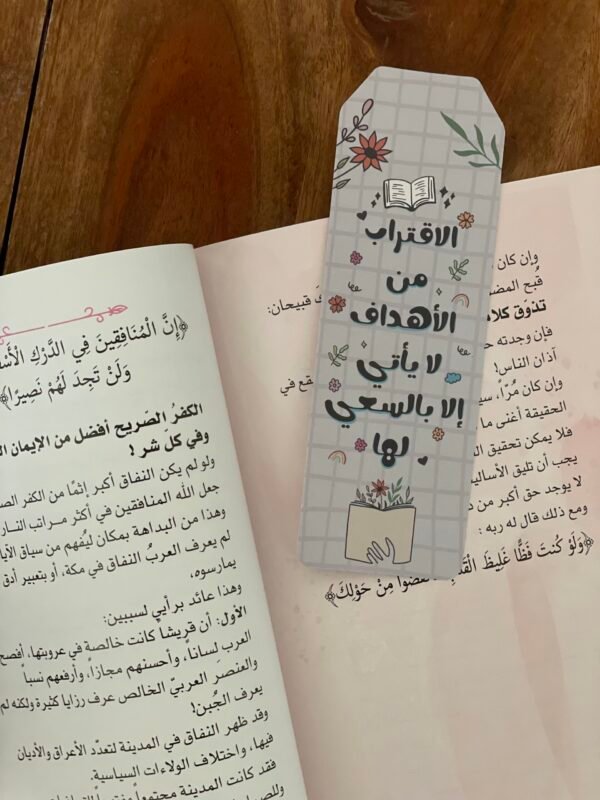 الاقتراب
من
الأهداف
لا يأتي
إلا بالسعي
لها
وإن كان
قبح المض
ـك قبيحان:
تذوّق كلا
فإن وجدته
آذان الناس!
وإن كان مُرّاً، سي
ـقع في
الحقيقة أغنى ما
فلا يمكن تحقيق ال
يجب أن تليق الأسالي
لا يوجد حق أكبر من
ومع ذلك قال له ربه:
﴿وَلَوْ كُنتَ فَظًّا غَلِيظَ الْقَلْ مِنْ حَوْلِكَ﴾
﴿إِنَّ الْمُنَافِقِينَ فِي الدَّرْكِ الْأَسْ
وَلَنْ تَجِدَ لَهُمْ نَصِيرًا﴾
الكفرُ الصّريح أفضل من الإيمان ال
وفي كل شر!
ولو لم يكن النفاق أكبر إثمًا من الكفر الص
جعل الله المنافقين في أكثر مراتب النار
وهذا من البداهة بمكان ليُفهم من سياق الآيا
لم يعرف العربُ النفاق في مكة، أو بتعبير أدق
يمارسوه،
وهذا عائد برأيي لسببين:
الأول: أن قريشاً كانت خالصة في عروبتها، أفصح
العرب لساناً، وأحسنهم مجازاً، وأرفعهم نسباً
والعنصر العربيّ الخالص عرف رزايا كثيرة ولكنه لم
يعرف الجُبن!
وقد ظهر النفاق في المدينة لتعدّد الأعراق والأديان
فيها، واختلاف الولاءات السياسية.
فقد كانت المدينة مجتمعاً